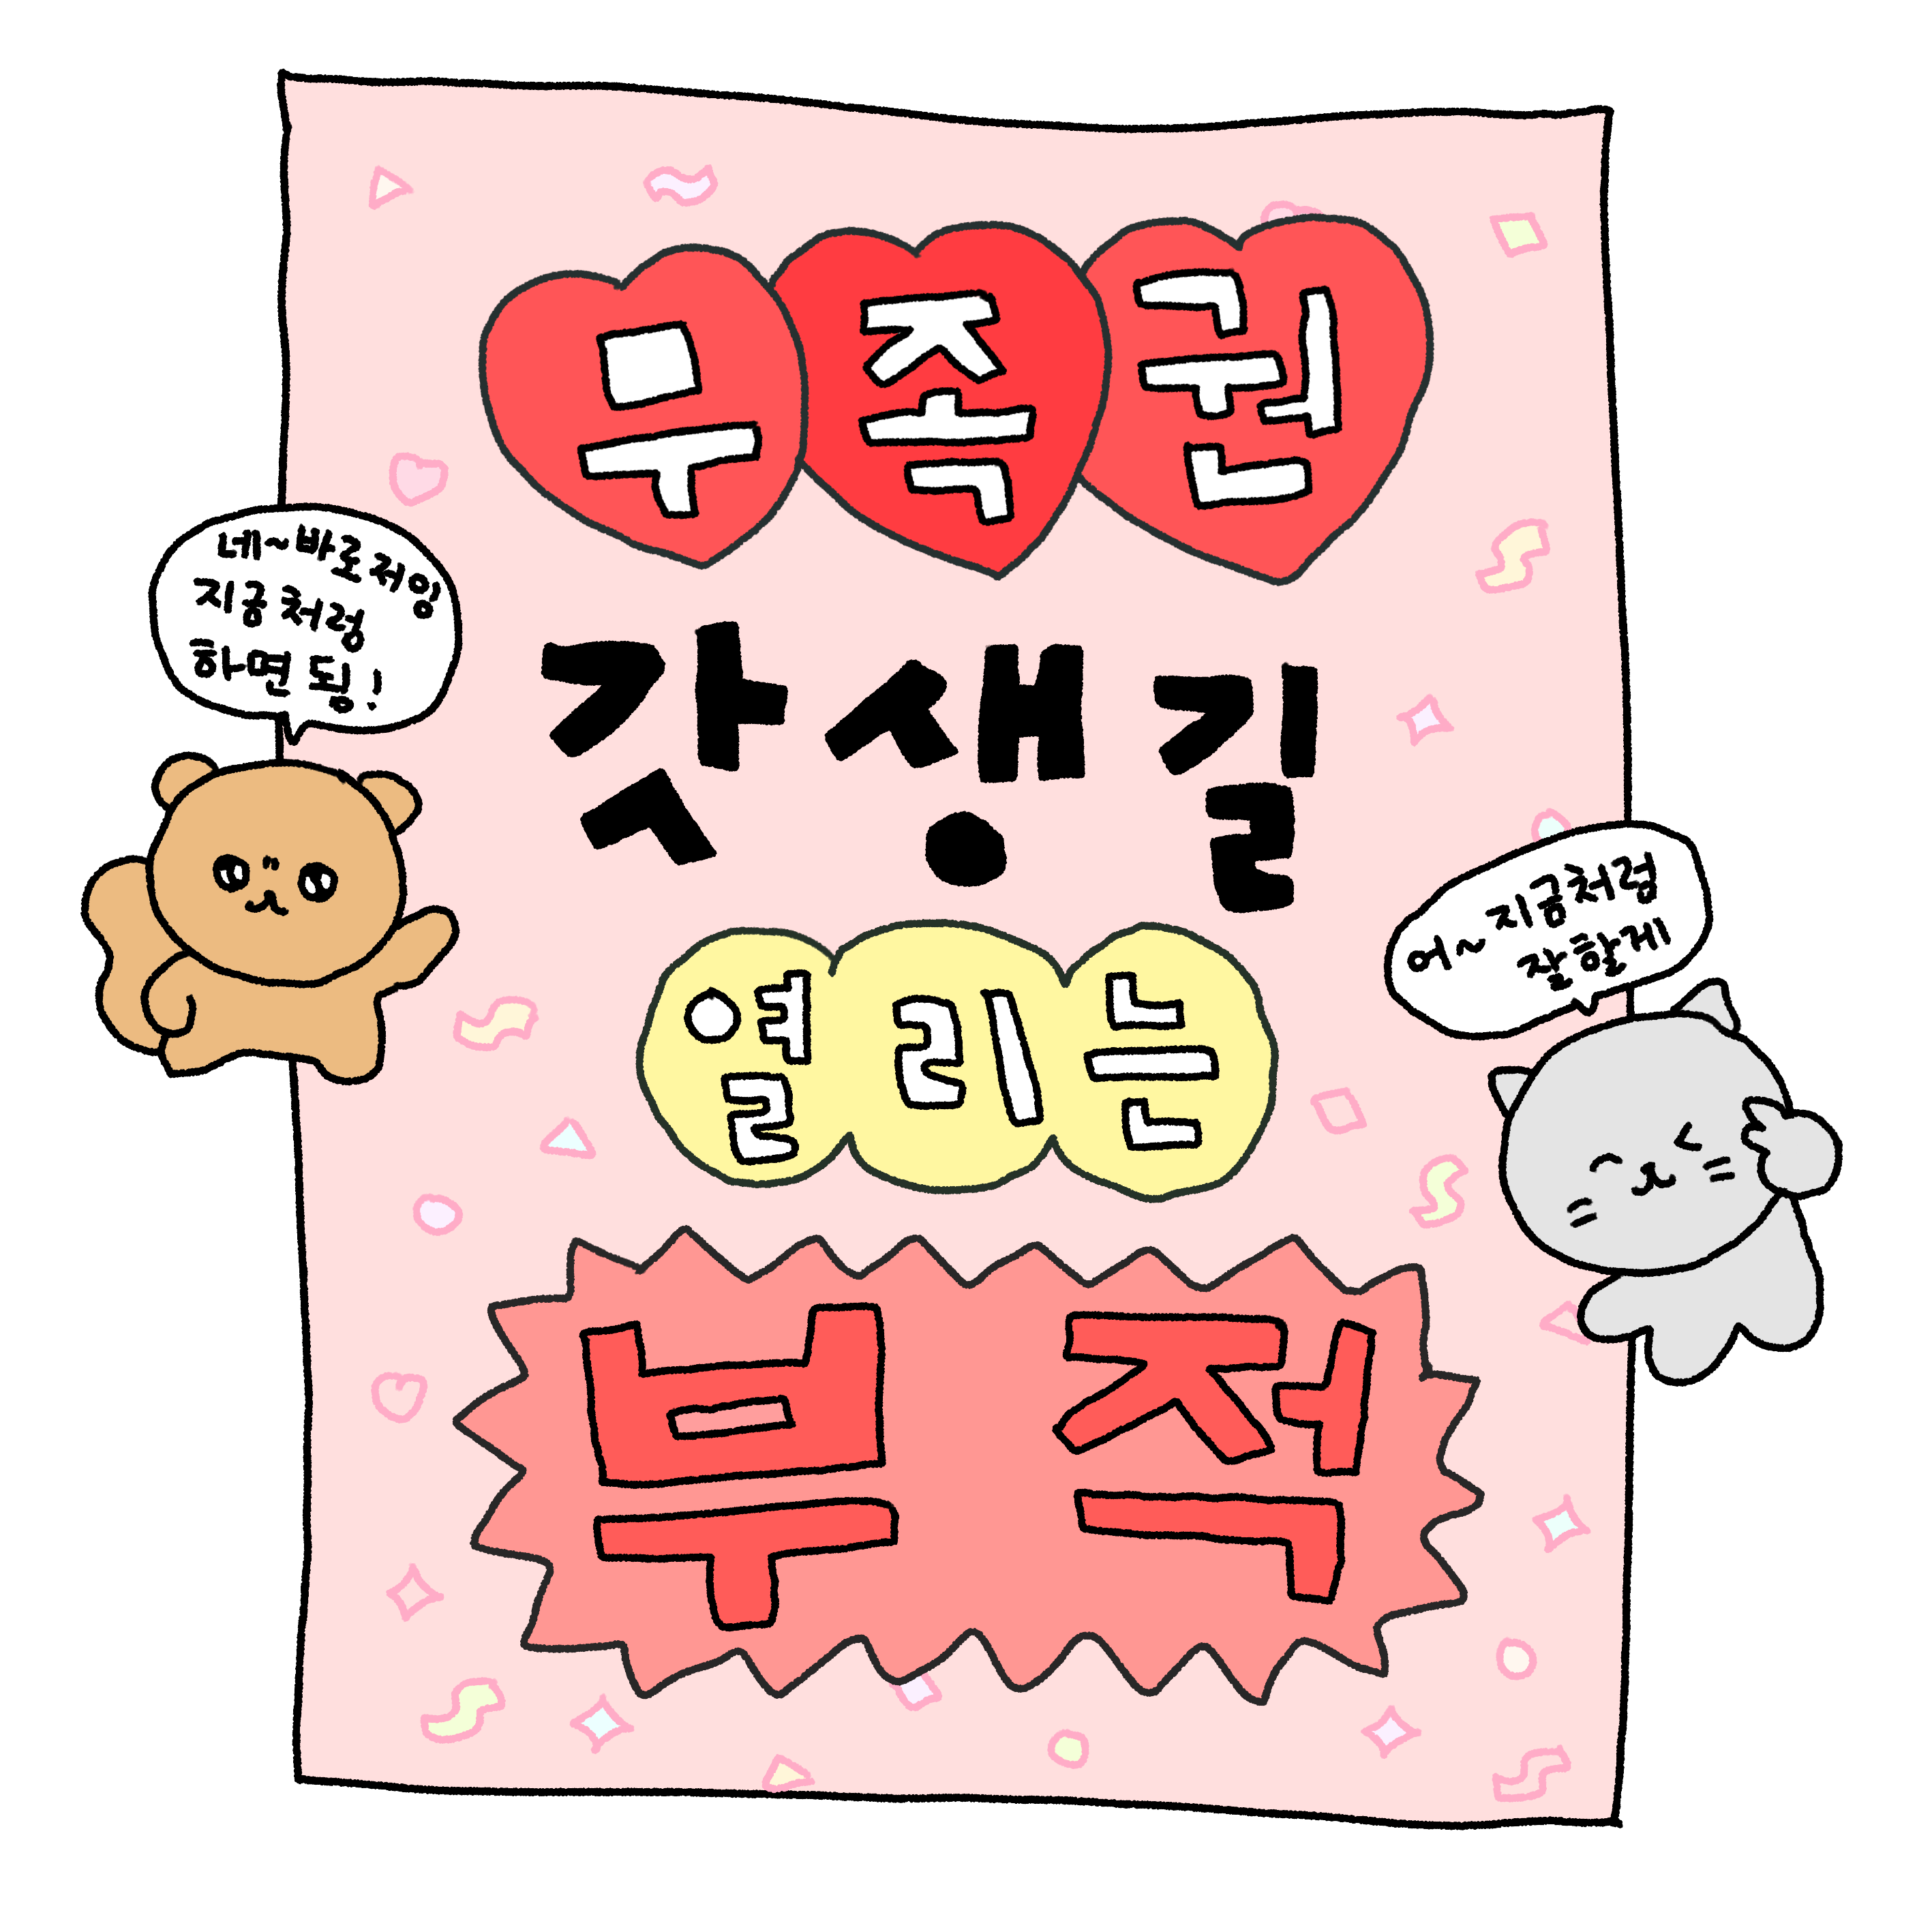 무족권
갓생길
열리는
부적
네~바로저잉
지금처럼
하면 됑!
어~지금처럼
잘할게